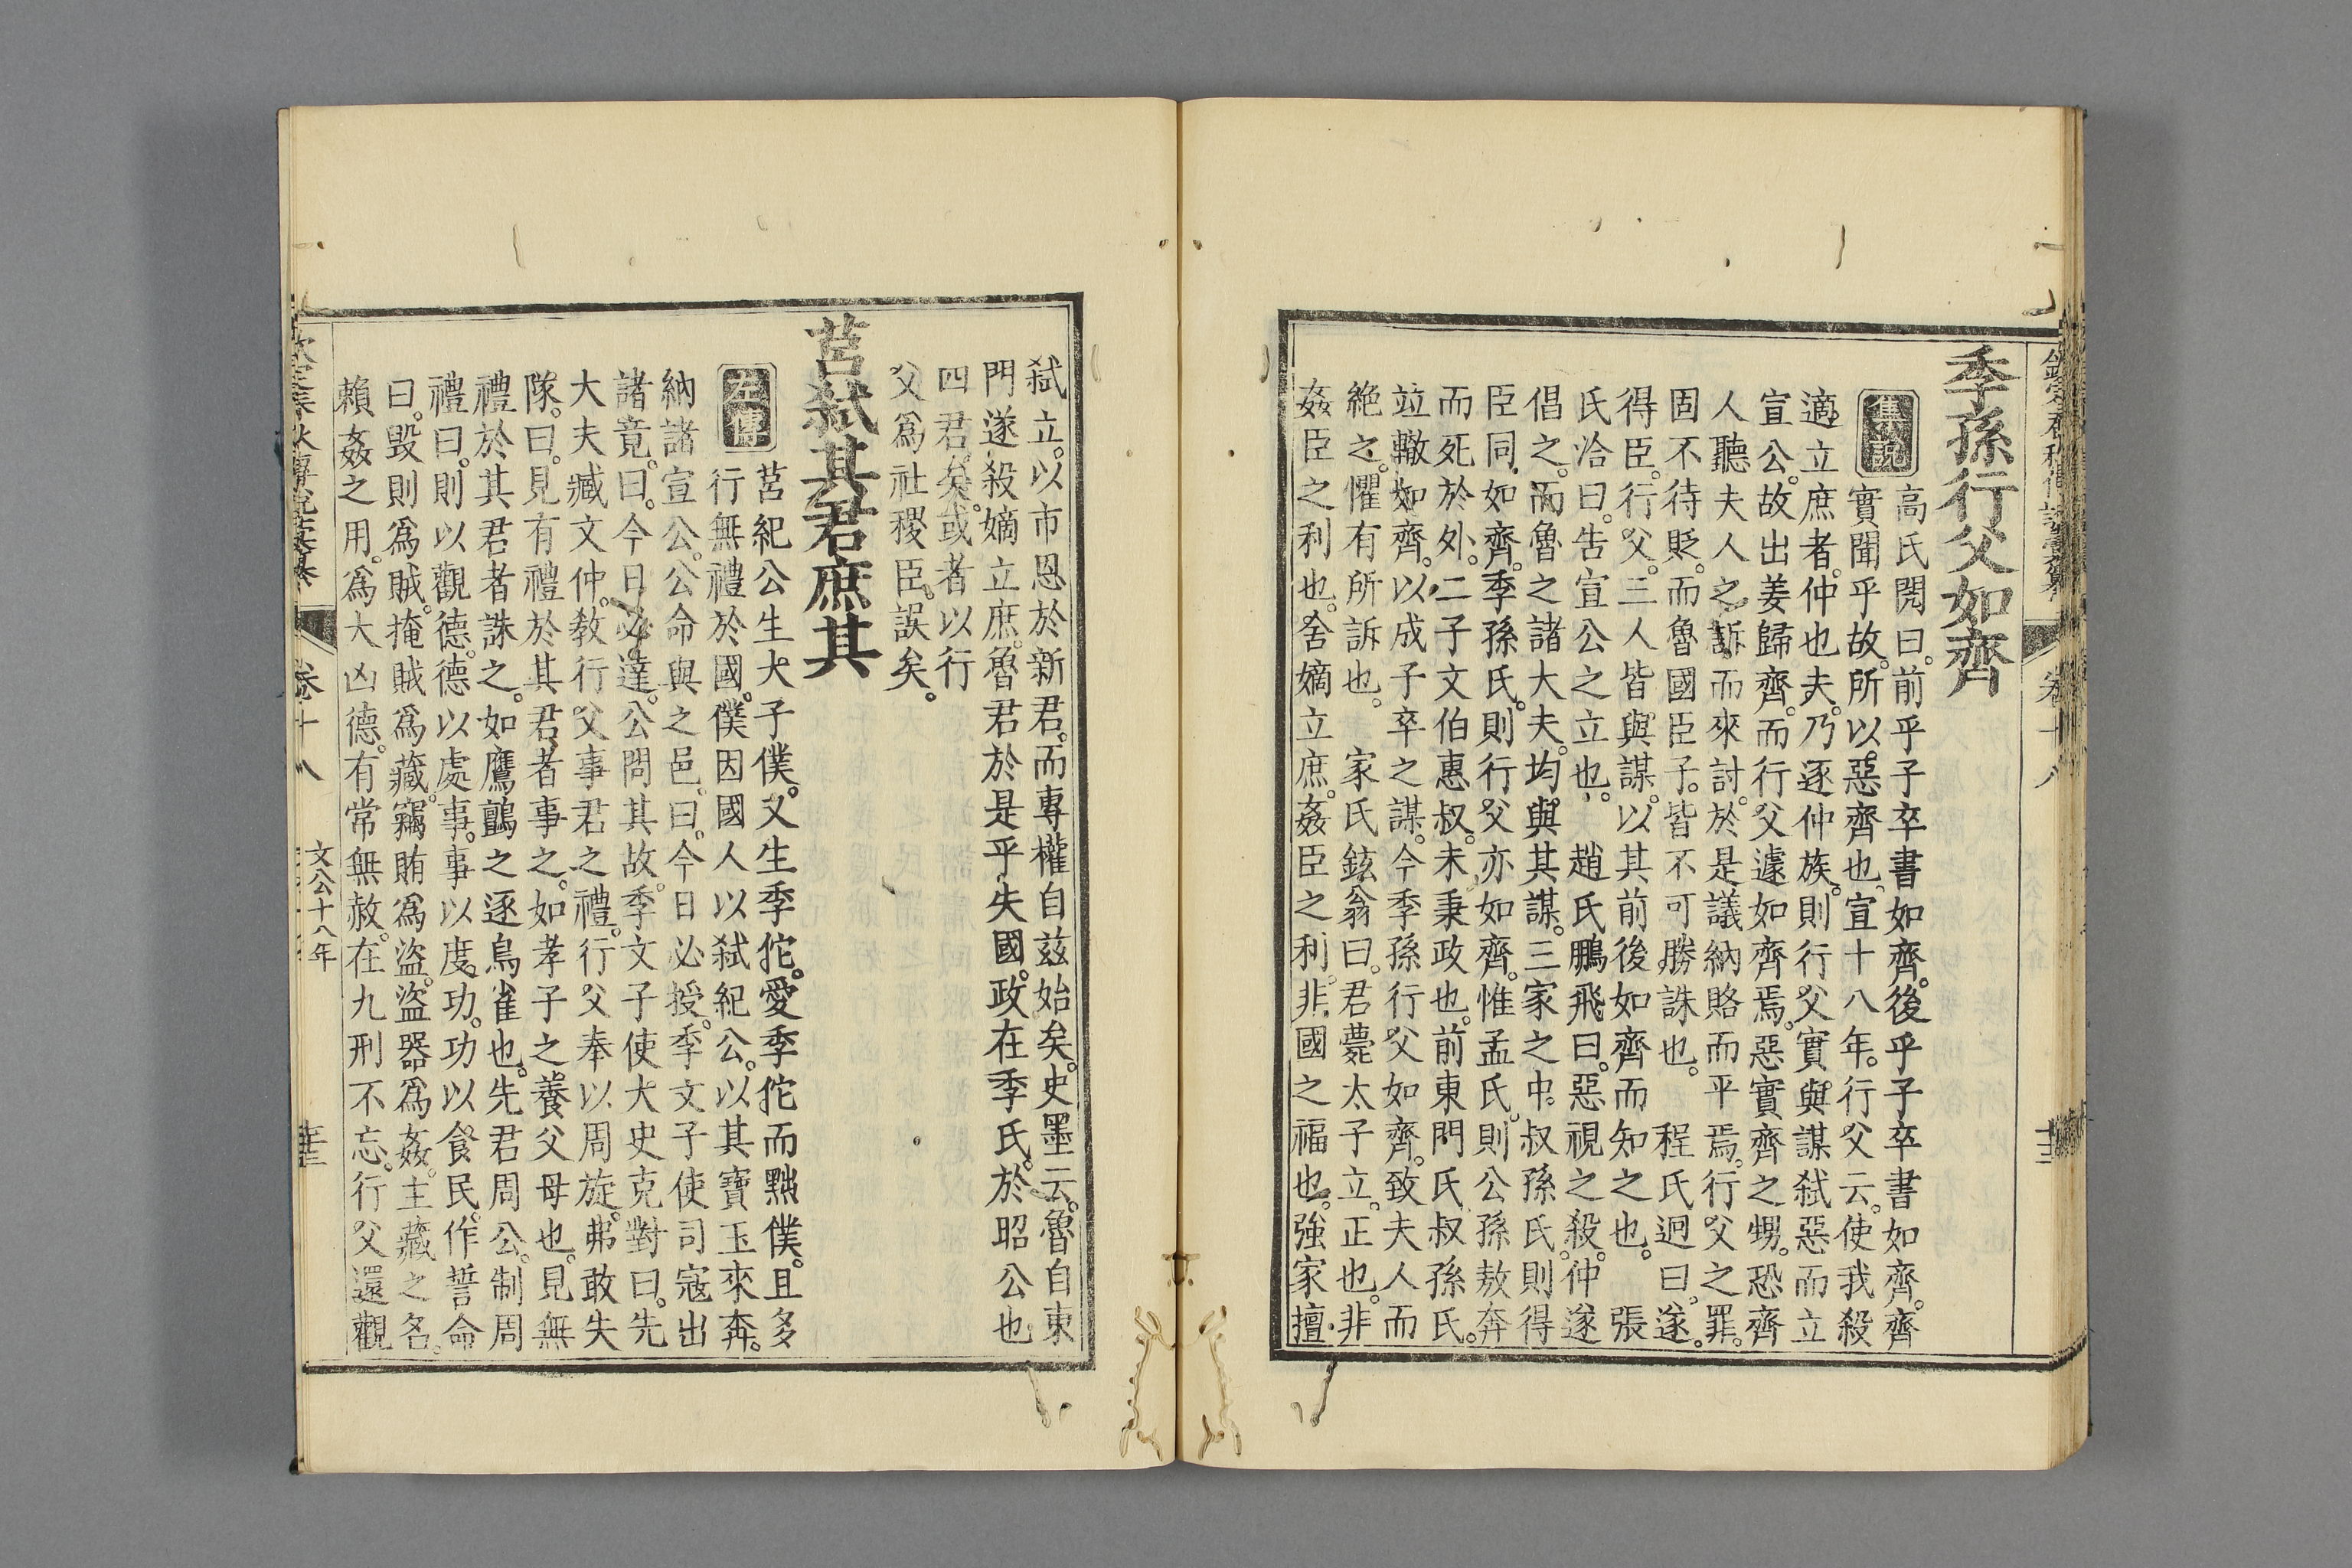 季孫行父如齊
集說
高氏閌曰。前乎子卒書如齊。後乎子卒書如齊。齊
實聞乎故。所以惡齊也。宣十八年。行父云。使我殺
適立庶者。仲也夫。乃逐仲族。則行父實與謀弒惡而立
宣公。故出姜歸齊。而行父遽如齊焉。惡實齊之甥。恐齊
人聽夫人之訴而來討。於是議納賂而平焉。行父之罪。
固不待貶。而魯國臣子。皆不可勝誅也。 程氏迥曰。遂。
得臣。行父。三人皆與謀。以其前後如齊而知之也。 張
氏洽曰。告宣公之立也。 趙氏鵬飛曰。惡視之殺。仲遂
倡之。而魯之諸大夫。均與其謀。三家之中。叔孫氏。則得
臣同如齊。季孫氏。則行父亦如齊。惟孟氏。則公孫敖奔
而死於外。二子文伯惠叔。未秉政也。前東門氏叔孫氏。
竝轍如齊。以成子卒之謀。今季孫行父如齊。致夫人而
絶之。懼有所訴也。 家氏鉉翁曰。君薨太子立。正也。非
姦臣之利也。舍嫡立庶。姦臣之利。非國之福也。強家擅
弒立。以市恩於新君。而專權自茲始矣。史墨云。魯自東
門遂殺嫡立庶。魯君於是乎失國。政在季氏。於昭公也
四君矣。或者以行
父爲社稷臣。誤矣。
莒弒其君庶其
左傳
莒紀公生大子僕。又生季佗。愛季佗而黜僕。且多
行無禮於國。僕因國人以弒紀公。以其寶玉來奔。
納諸宣公。公命與之邑。曰。今日必授。季文子使司寇出
諸竟。曰。今日必達。公問其故。季文子使大史克對曰。先
大夫臧文仲。敎行父事君之禮。行父奉以周旋。弗敢失
隊。曰。見有禮於其君者。事之。如孝子之養父母也。見無
禮於其君者誅之。如鷹鸇之逐鳥雀也。先君周公。制周
禮曰。則以觀德。德以處事。事以度功。功以食民。作誓命
曰。毁則爲賊。掩賊爲藏。竊賄爲盜。盜器爲姦。主藏之名。
賴姦之用。爲大凶德。有常無赦。在九刑不忘。行父還觀
卷十八
文公十八年